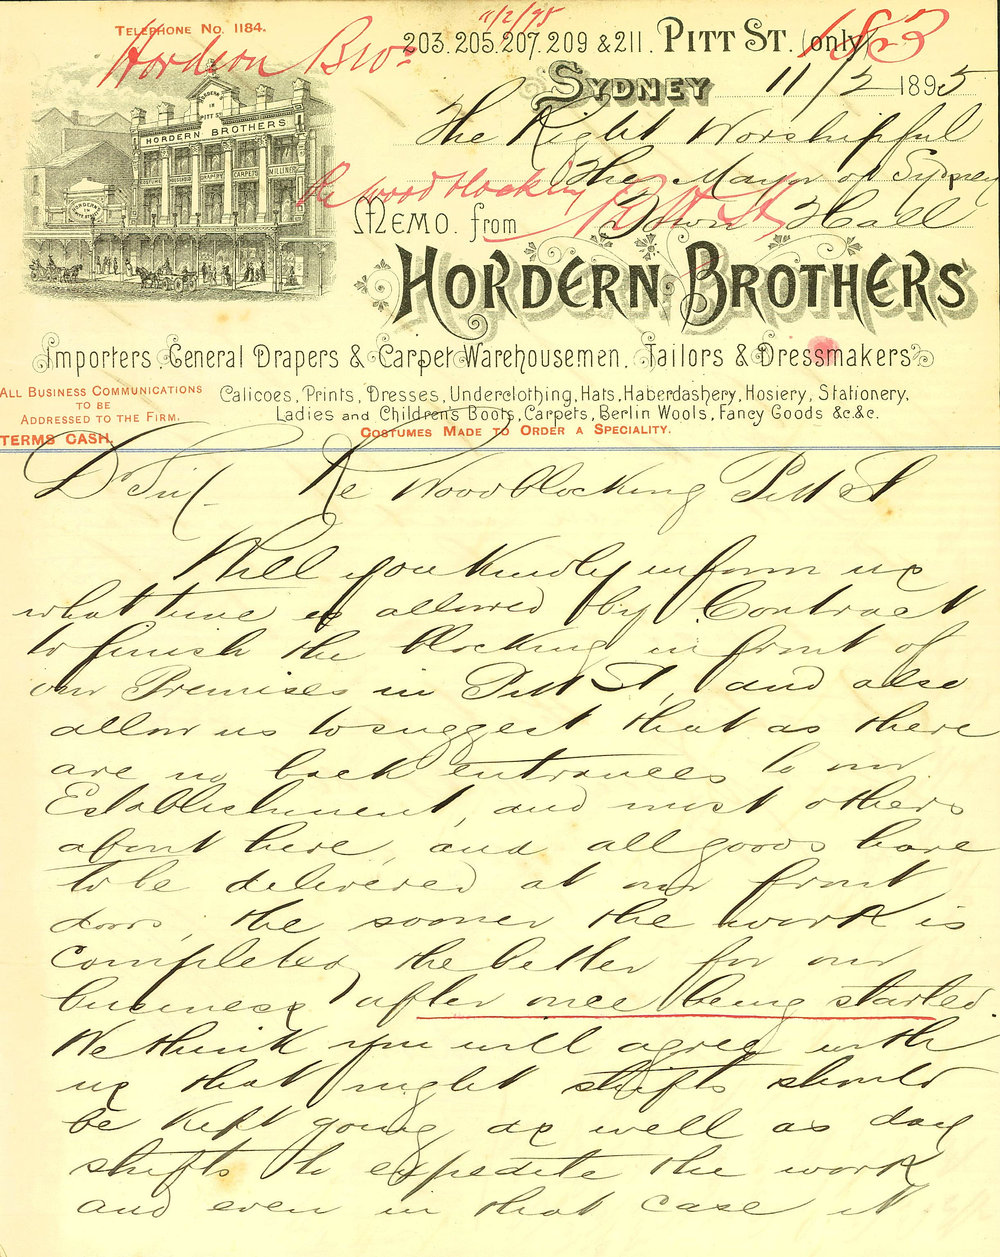 TELEPHONE NO. 1184.
11/2/95
Hordern Bros
203. 205. 207. 209 & 211. PITT ST. (only)
1883
SYDNEY 11/2 1895
The Right Worshipful
The Mayor of Sydney
Town Hall
Re wood blocking Pitt St
HORDERN BROTHERS
IN
PITT ST.
HORDERN BROTHERS
CARPETS
MILLINERY
MEMO. from
HORDERN BROTHERS
Importers. General Drapers & Carpet Warehousemen. Tailors & Dressmakers.
ALL BUSINESS COMMUNICATIONS
TO BE
ADDRESSED TO THE FIRM.
TERMS CASH.
Calicoes, Prints, Dresses, Underclothing, Hats, Haberdashery, Hosiery, Stationery,
Ladies and Children's Boots, Carpets, Berlin Wools, Fancy Goods &c.&c.
COSTUMES MADE TO ORDER A SPECIALITY.
D Sir/ Re Woodblocking Pitt St
Will you kindly inform us
what time is allowed by Contract
to finish the blocking in front of
our Premises in Pitt St, and also
allow us to suggest that as there
are no back entrances to our
Establishment, and most others
about here, and all goods have
to be delivered at our front
doors, the sooner the work is
completed, the better for our
business, after once being started.
We think you will agree with
us that night shifts should
be kept going as well as day
shifts to expedite the work
and even in that case it